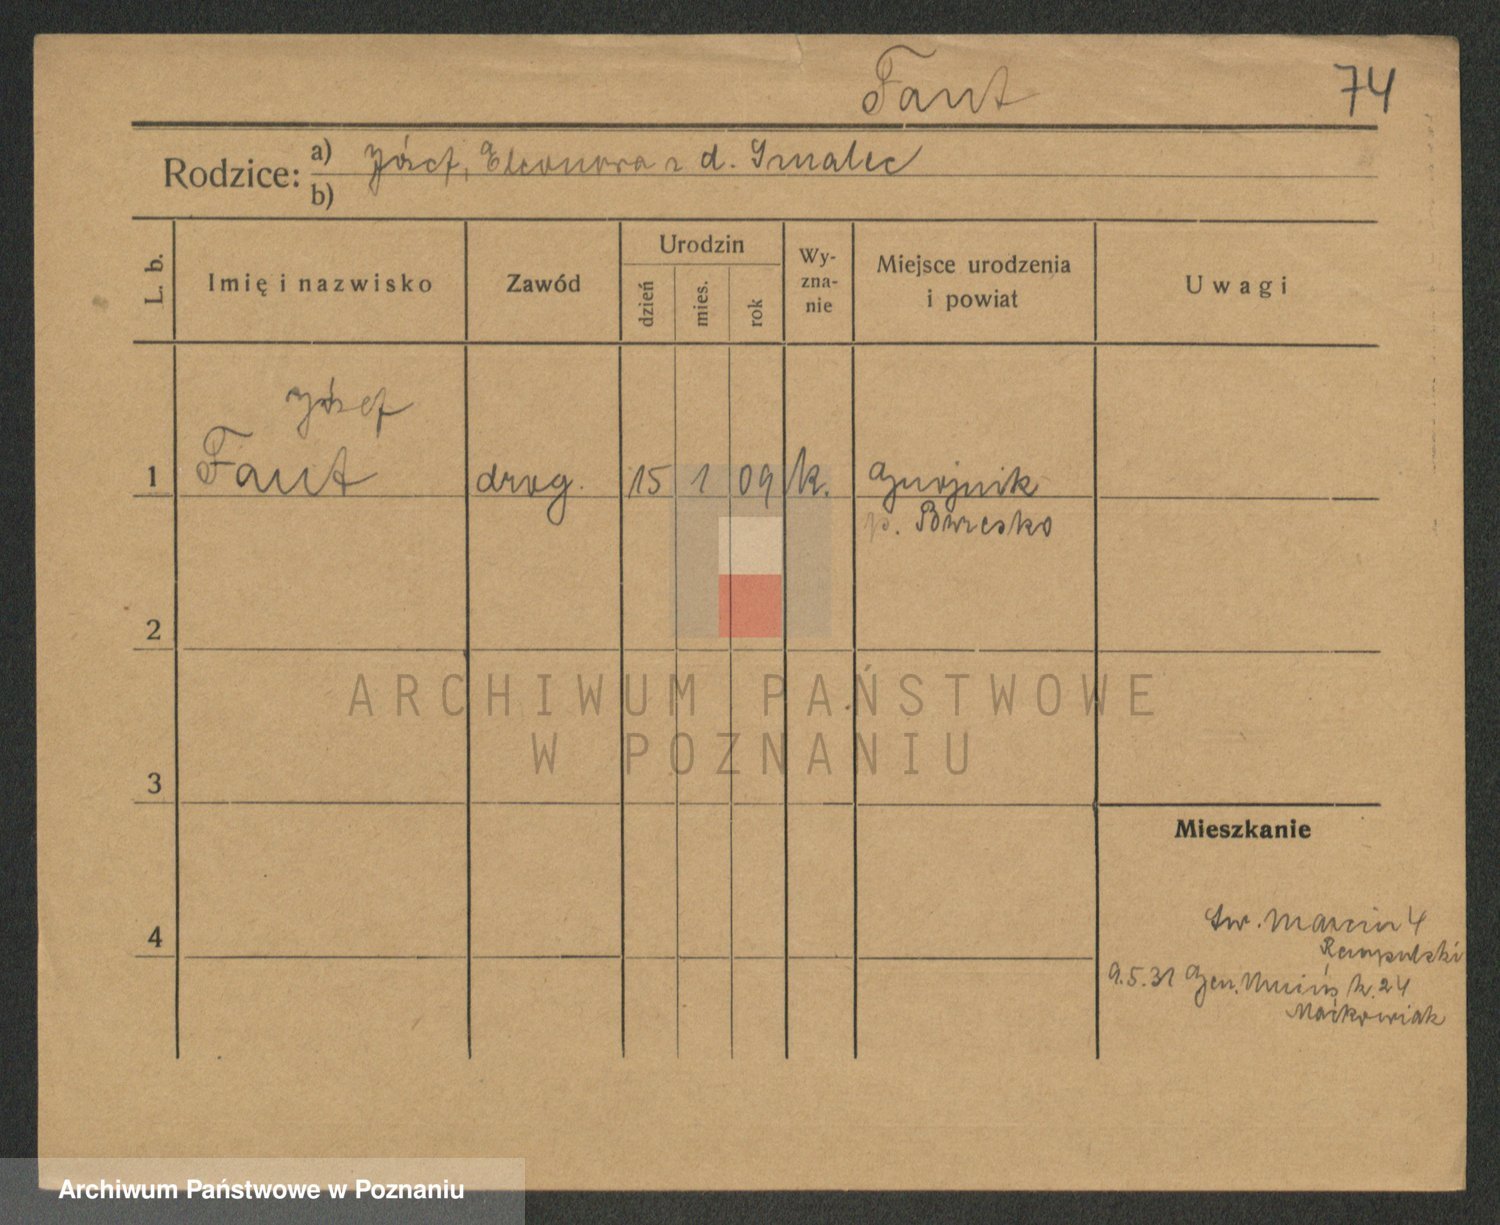 Faut
74
Rodzice:
a) Józef, Eleonora z d. Smalec
b)
L. b.
Imię i nazwisko
Zawód
Urodzin
dzień
mies.
rok
Wy-
zna-
nie
Miejsce urodzenia
i powiat
Uwagi
Józef
1 Faut drog. 15 1 09 k. Gnojnik
p. Brzesko
2
3
4
Mieszkanie
Św. Marcin 4
Rempulski
9.5.31 Gen. 24
Maćkowiak
ARCHIWUM PAŃSTWOWE
W POZNANIU
Archiwum Państwowe w Poznaniu